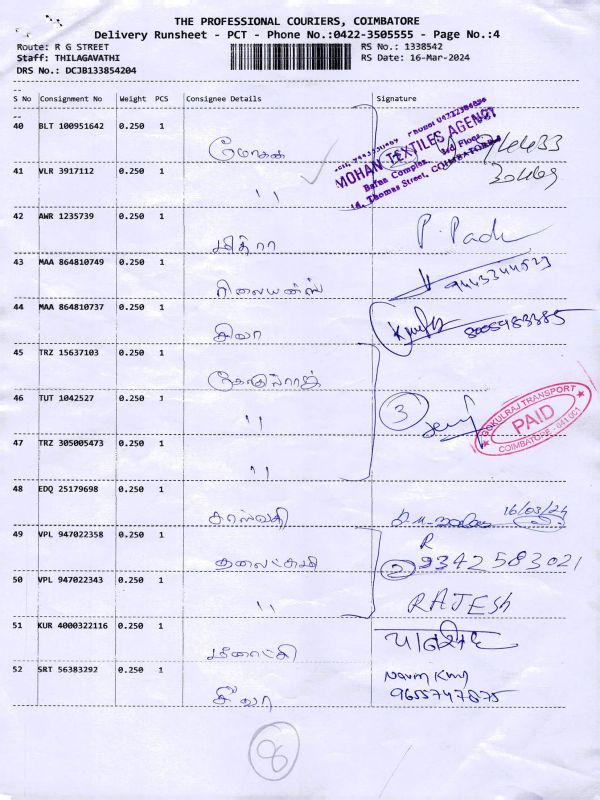 THE PROFESSIONAL COURIERS, COIMBATORE
Delivery Runsheet - PCT - Phone No.:0422-3505555 - Page No.:4
Route: R G STREET RS No.: 1338542
Staff: THILAGAVATHI RS Date: 16-Mar-2024
DRS No.: DCJB133854204
S No Consignment No Weight PCS Consignee Details Signature
40 BLT 100951642 0.250 1 மோகன்
MOHAN TEXTILES AGENCY
Bafna Complex,
Thomas Street, COIMBATORE
41 VLR 3917112 0.250 1 "
42 AWR 1235739 0.250 1 மித்ரா P. Padi
43 MAA 864810749 0.250 1 ரிலையன்ஸ் 9443344523
44 MAA 864810737 0.250 1 சிவா
45 TRZ 15637103 0.250 1
46 TUT 1042527 0.250 1 " 3
GOKULRAJ TRANSPORT
PAID
COIMBATORE - 641 001
47 TRZ 305005473 0.250 1 "
48 EDQ 25179698 0.250 1 16/03/24
49 VPL 947022358 0.250 1 2 9342583021
50 VPL 947022343 0.250 1 " RAJESH
51 KUR 4000322116 0.250 1 மீனாட்சி
52 SRT 56383292 0.250 1 சீவா 9655747875
8